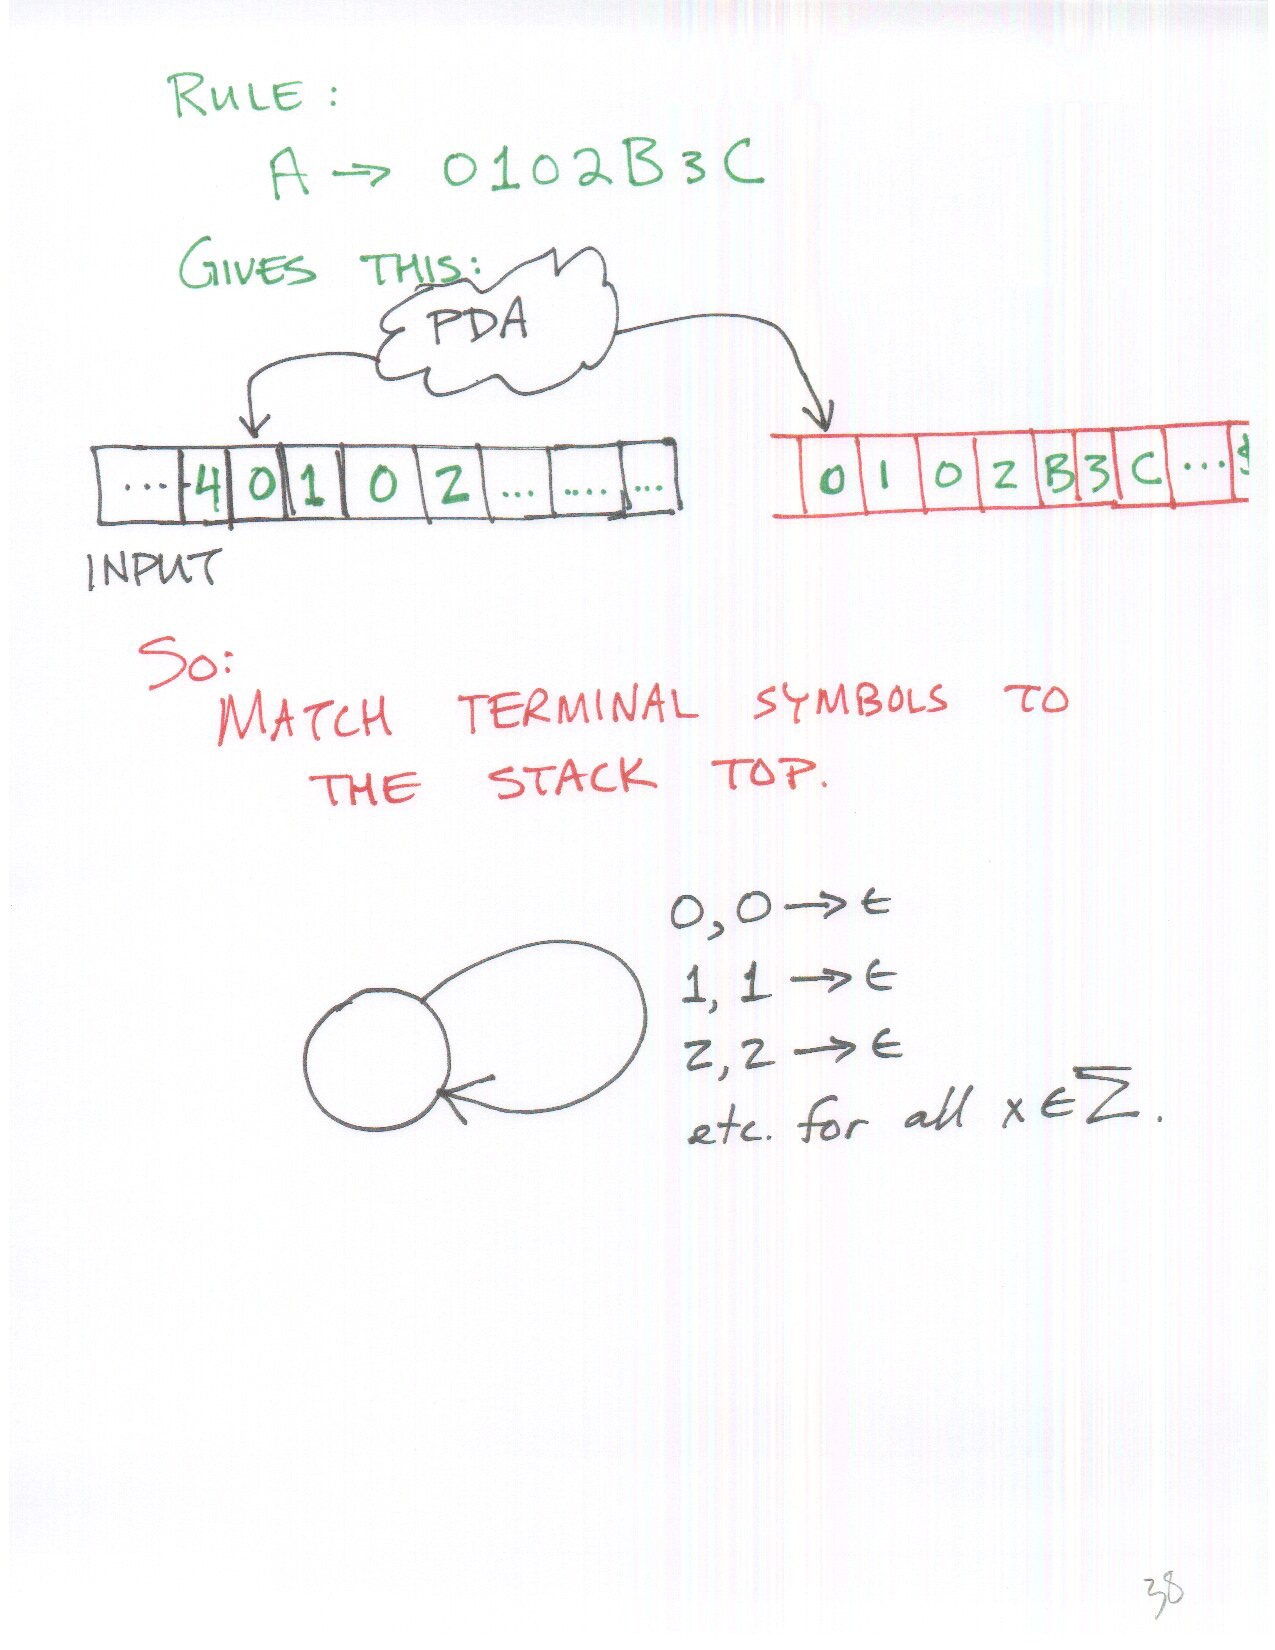 RULE:
A → 0102B3C
GIVES THIS:
PDA
... 4 0 1 0 2 ... .... ...
0 1 0 2 B 3 C ... $
INPUT
SO:
MATCH TERMINAL SYMBOLS TO
THE STACK TOP.
0,0 → ε
1,1 → ε
2,2 → ε
etc. for all x ∈ Σ.
38